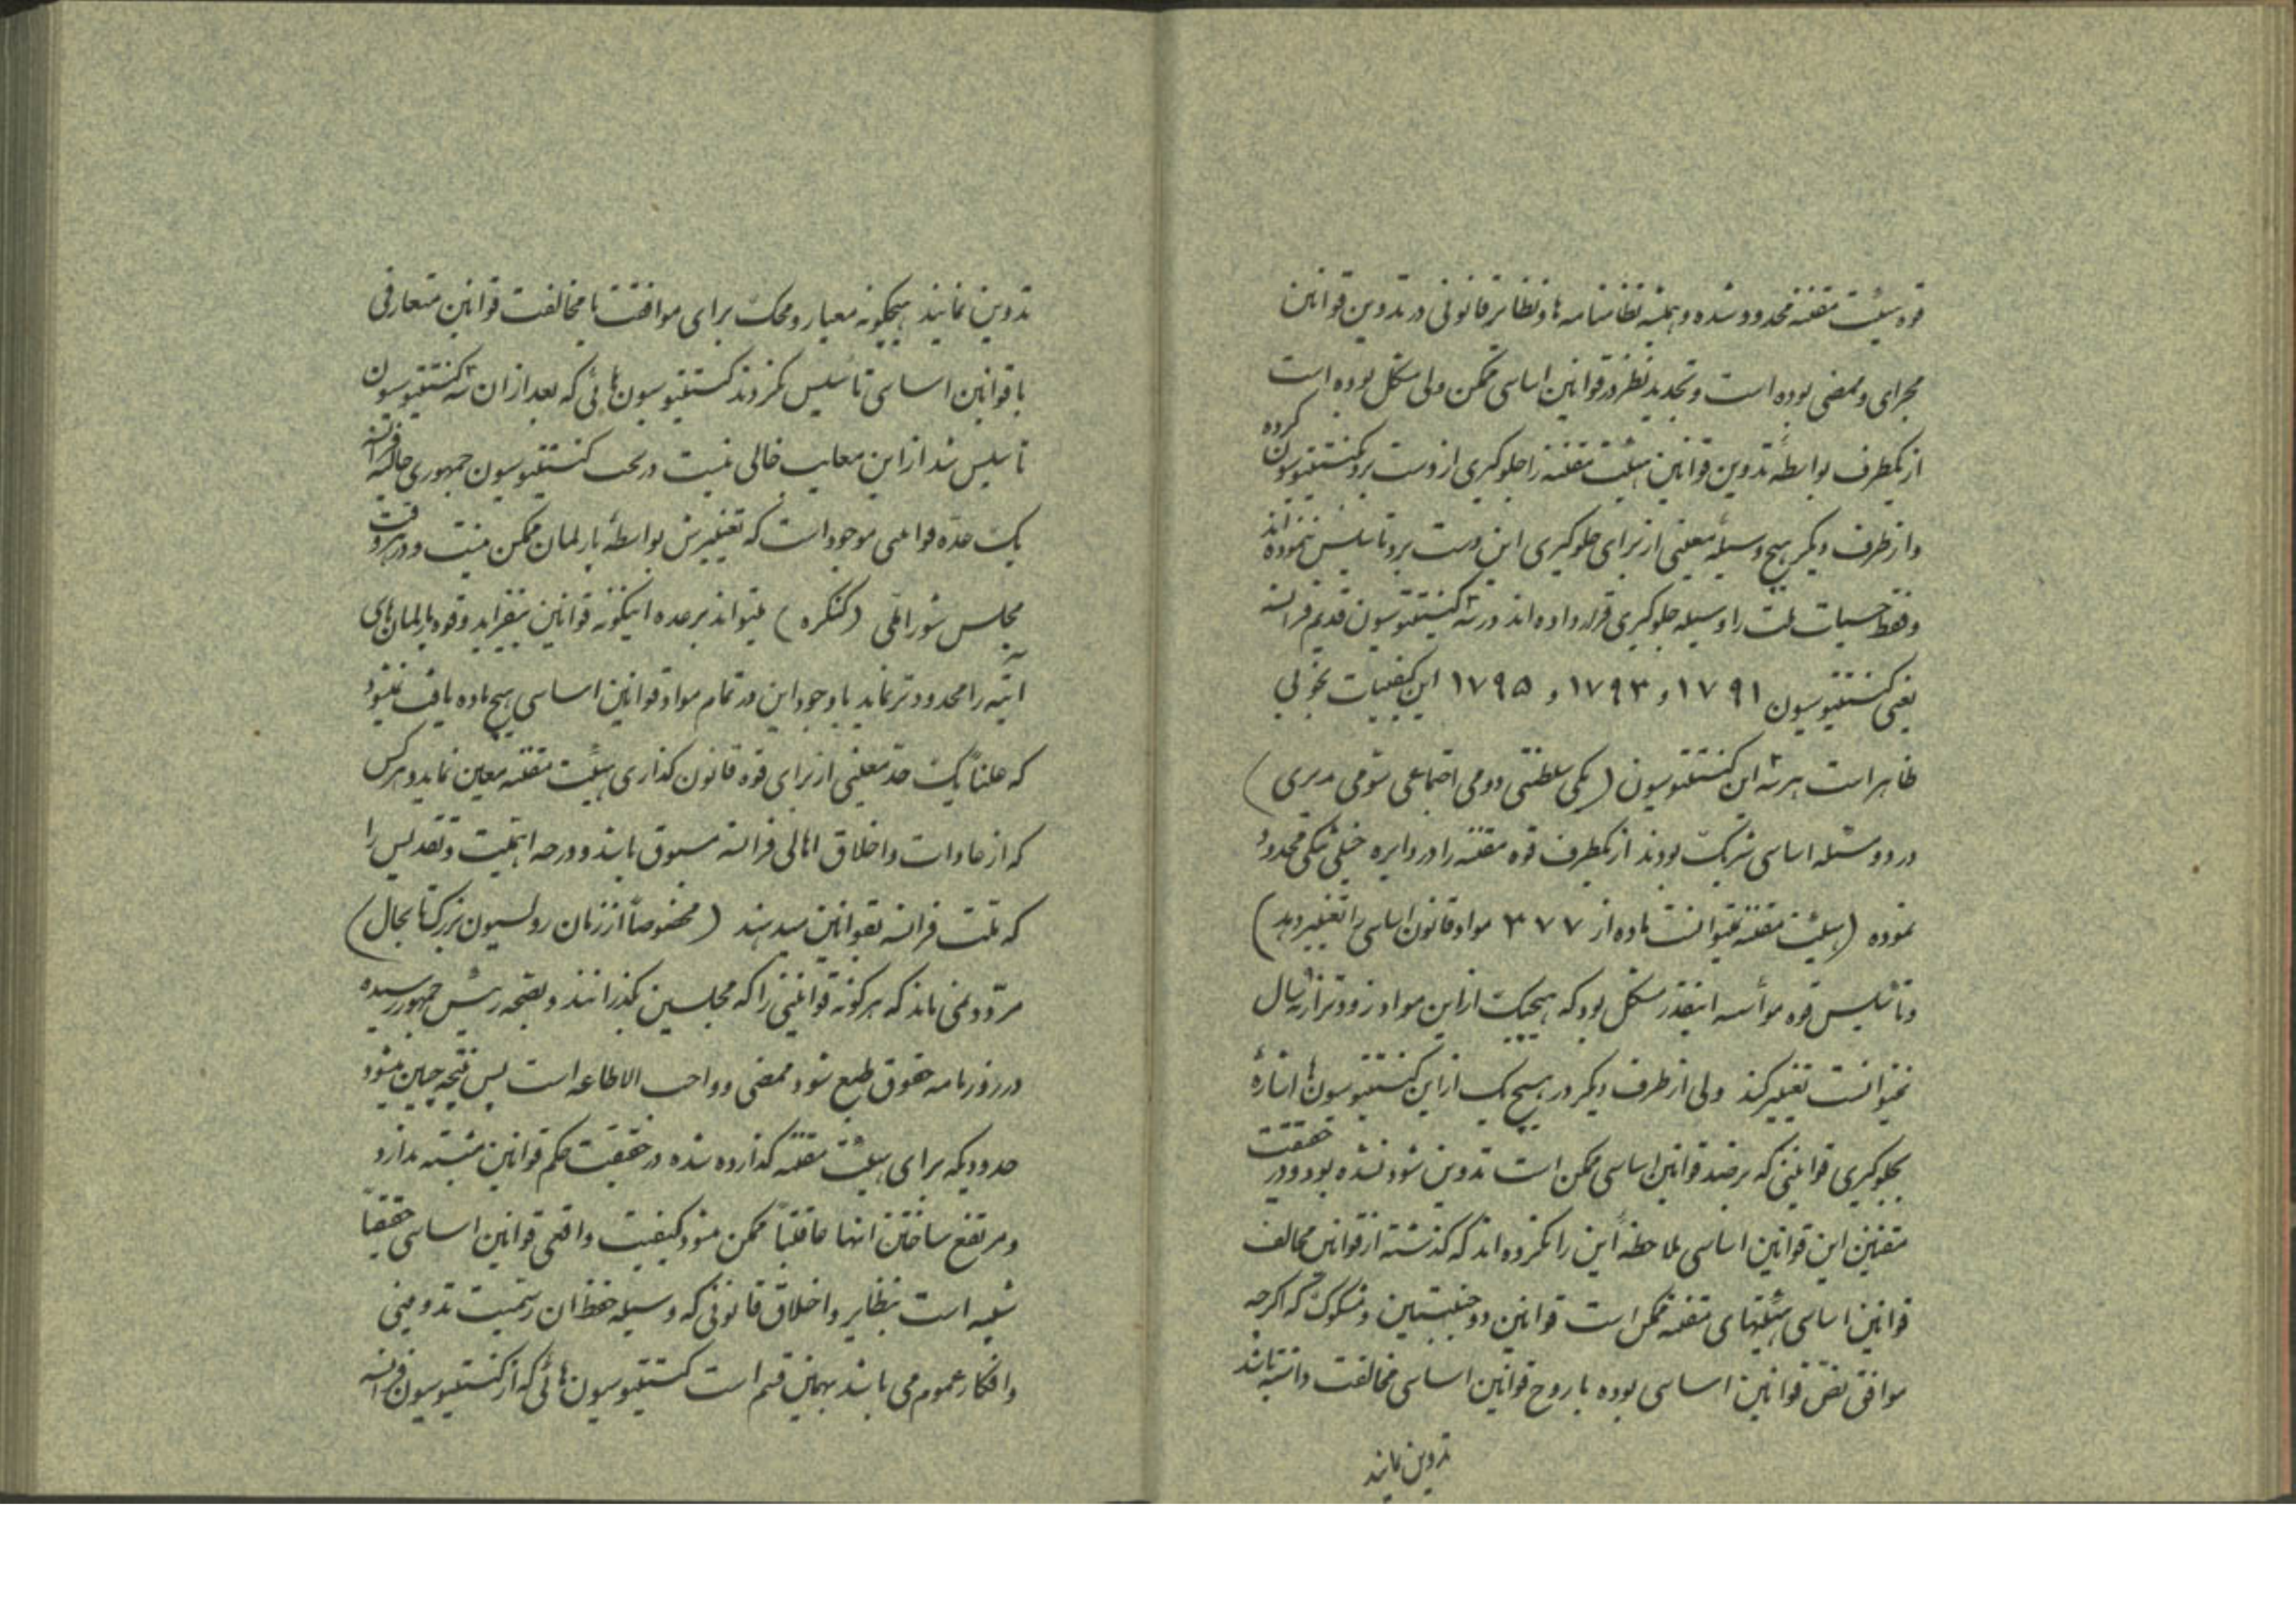 قوه هیئت مقننه محدود شده و همیشه نظامنامه ها و نظایر قانونی در تدوین قوانین
مجرای و ممضی بوده است و تجدید نظر در قوانین اساسی ممکن ولی مشکل بوده است
از یکطرف بواسطه تدوین قوانین هیئت مقننه را جلوگیری از دست برد کنستیتوسیون کرده
و از طرف دیگر هیچ وسیله معینی از برای جلوگیری این دست برد تأسیس ننموده اند
و فقط حسیات ملت را وسیله جلوگیری قرار داده اند در سه کنستیتوسیون قدیم فرانسه
یعنی کنستیتوسیون ۱۷۹۱ و ۱۷۹۳ و ۱۷۹۵ این کیفیات بخوبی
ظاهر است هر سه این کنستیتوسیون (یکی سلطنتی دومی اجتماعی سومی مدیری)
در دو مسئله اساسی شریک بودند از یکطرف قوه مقننه را در دایره خیلی تنگی محدود
نموده (هیئت مقننه نمیتوانست ماده از ۳۷۷ مواد قانون اساسی را تغییر دهد)
و تأسیس قوه مؤسسه اینقدر مشکل بود که هیچیک از این مواد زودتر از نه سال
نمیتوانست تغییر کند ولی از طرف دیگر در هیچ یک از این کنستیتوسیون ها اشارهٔ
بجلوگیری قوانینی که بر ضد قوانین اساسی ممکن است تدوین شود نشده بود و در حقیقت
مقننین این قوانین اساسی ملاحظه این را نکرده اند که گذشته از قوانین مخالف
قوانین اساسی هیئتهای مقننه ممکن است قوانین دو جنبتین و مشکوک که اگرچه
موافق نص قوانین اساسی بوده با روح قوانین اساسی مخالفت داشته باشد
تدوین نمایند
تدوین نمایند هیچگونه معیار و محک برای موافقت یا مخالفت قوانین متعارفی
با قوانین اساسی تأسیس نکردند کنستیتوسیون هائی که بعد از ان سه کنستیتوسیون
تأسیس شد از این معایب خالی نیست در تحت کنستیتوسیون جمهوری حالیه فرانسه
یک عده قوانینی موجود است که تغییرش بواسطه پارلمان ممکن نیست و در هر وقت
مجلس شورا ملی (کنگره) میتواند بر عده اینگونه قوانین بیفزاید و قوه پارلمان های
آتیه را محدودتر نماید با وجود این در تمام مواد قوانین اساسی هیچ ماده یافت نمیشود
که علناً یک حد معینی از برای قوه قانون گذاری هیئت مقننه معین نماید و هر کس
که از عادات و اخلاق اهالی فرانسه مسبوق باشد و درجه اهمیت و تقدیس را
که ملت فرانسه بقوانین میدهند (مخصوصاً از زمان رولسیون بزرگ تا بحال)
مردد نمی ماند که هر گونه قوانینی را که مجلسین بگذرانند و بصحه رئیس جمهور رسیده
در روزنامه حقوق طبع شود ممضی و واجب الاطاعه است پس نتیجه چنین میشود
حدودیکه برای هیئت مقننه گذارده شده در حقیقت حکم قوانین مثبته ندارد
و مرتفع ساختن انها عاقبتاً ممکن میشود کیفیت واقعی قوانین اساسی حقیقتاً
شبیه است بنظایر و اخلاق قانونی که وسیله حفظ ان رسمیت تدوینی
و افکار عموم می باشد بهمین قسم است کنستیتوسیون هائی که از کنستیتوسیون فرانسه